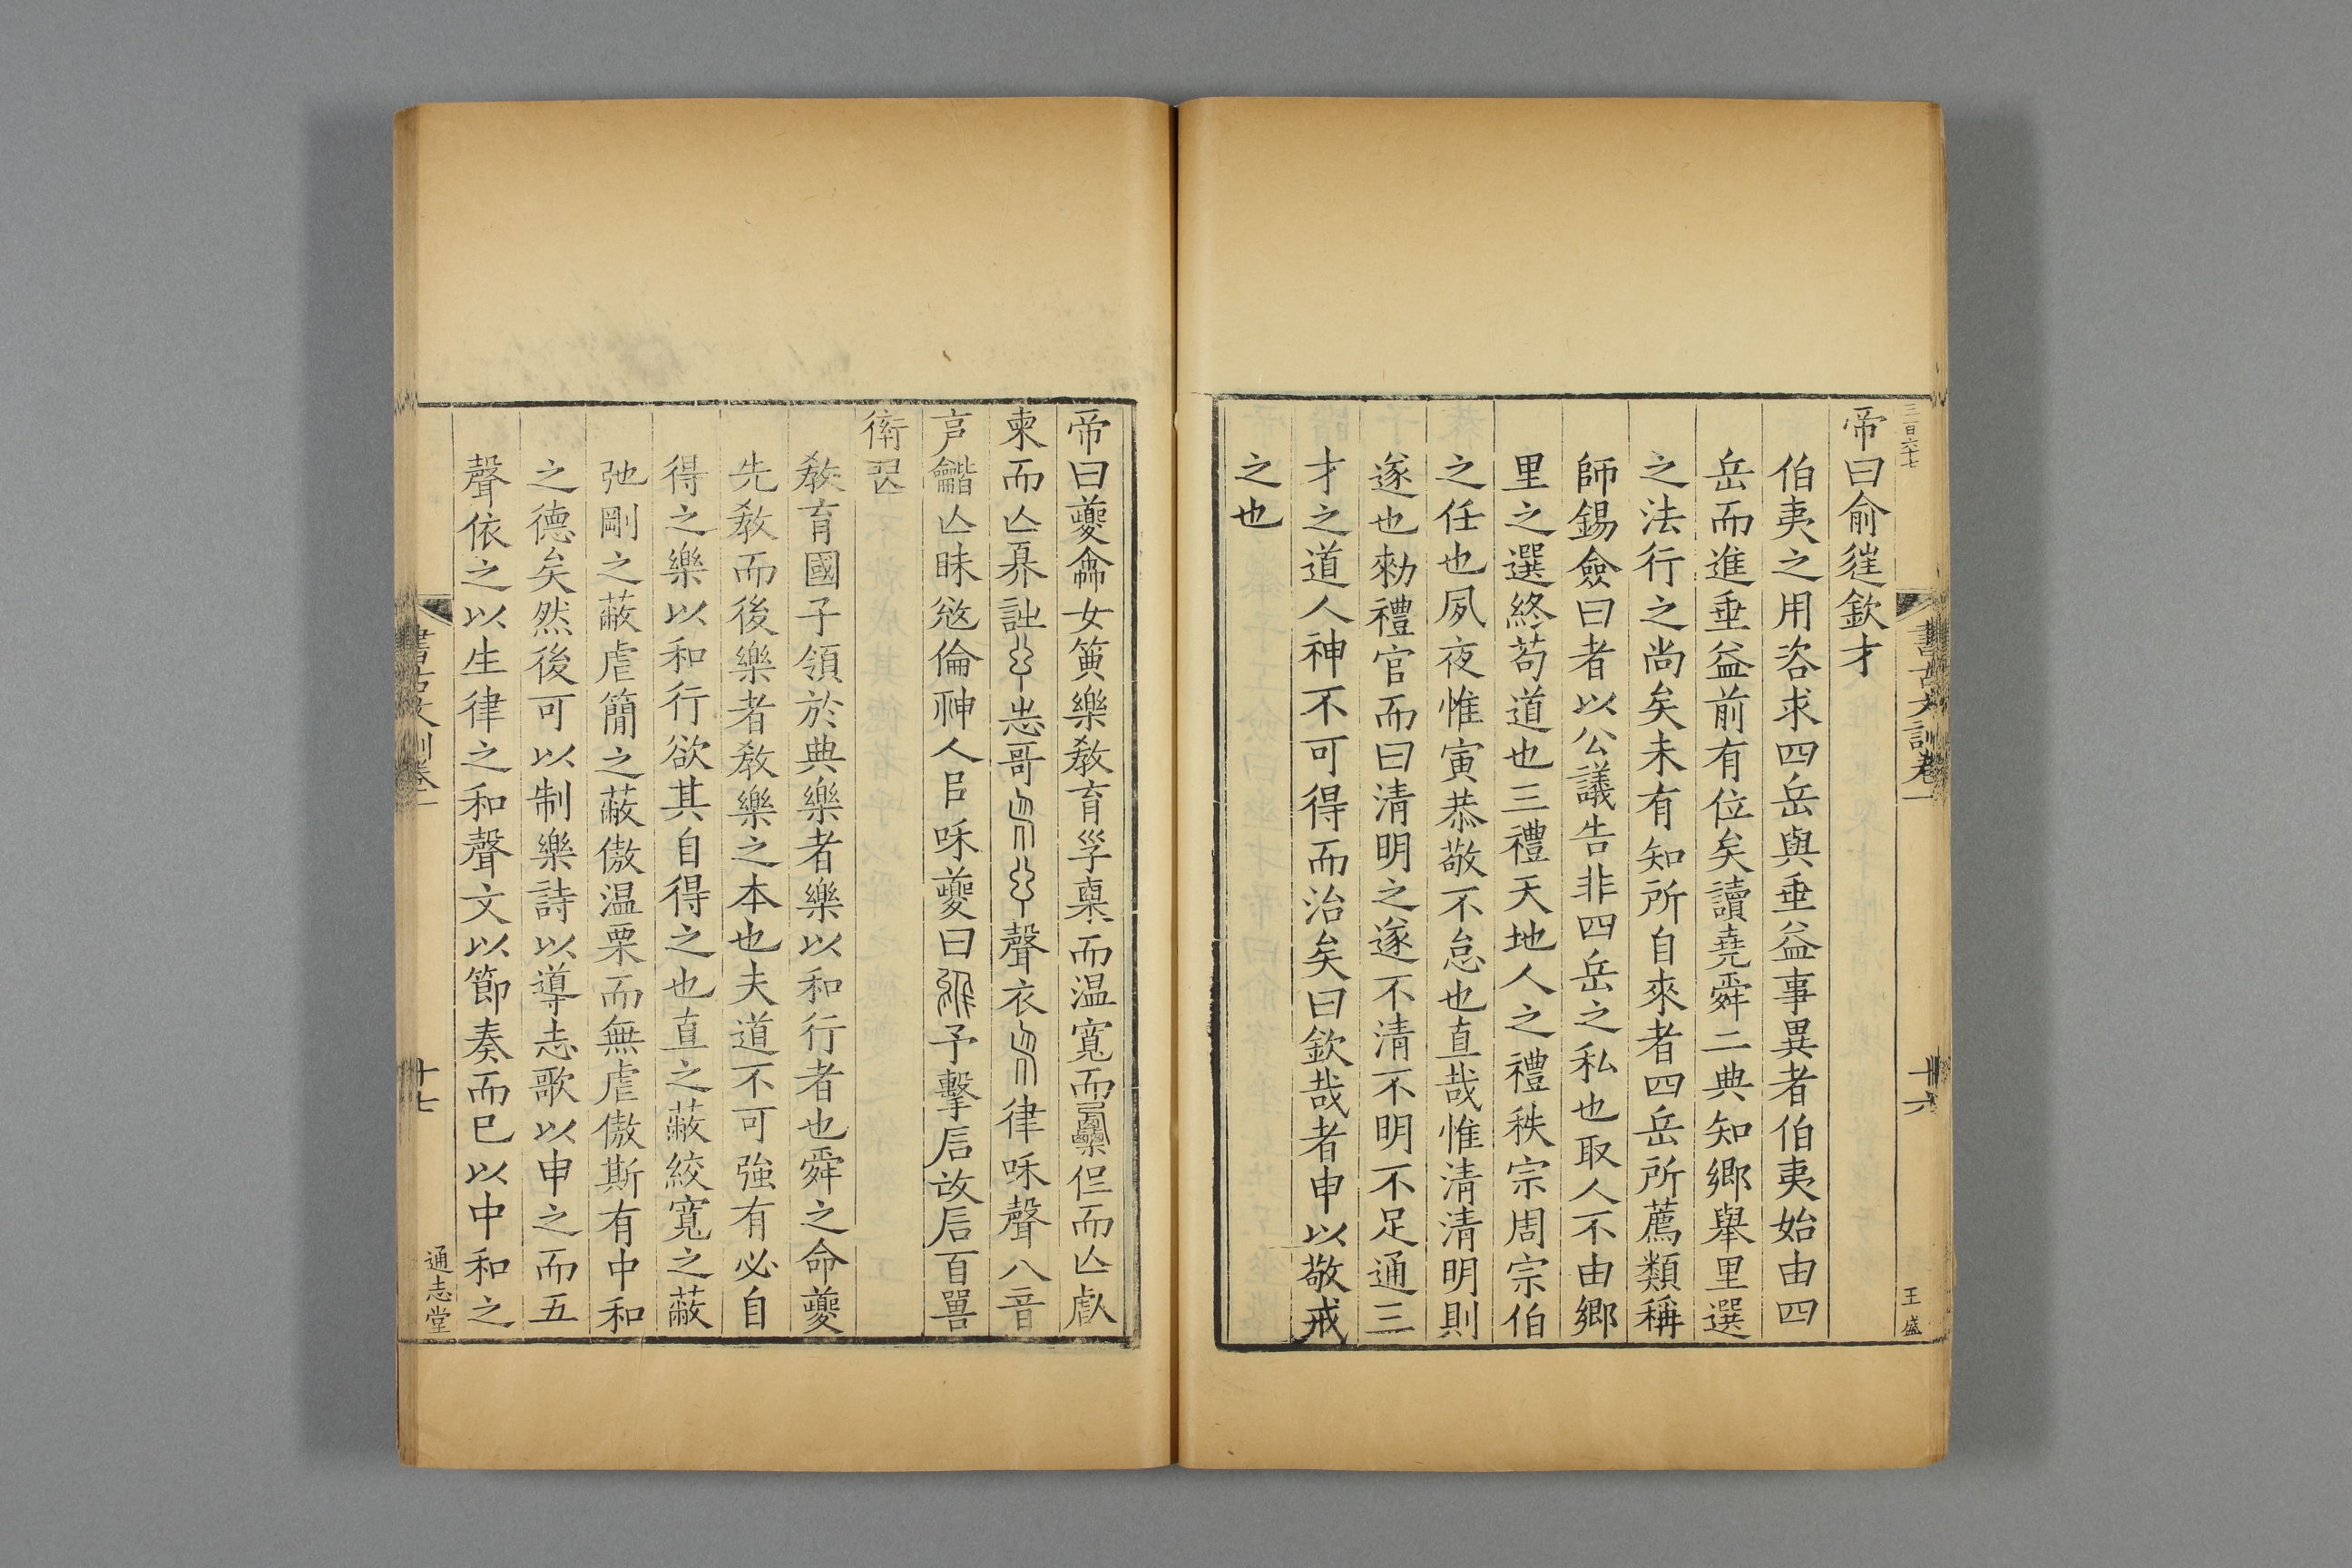 三百六十七
書古文訓卷一
十六
王盛
帝曰俞徃欽才
伯夷之用咨求四岳與垂益事異者伯夷始由四
岳而進垂益前有位矣讀堯舜二典知鄉舉里選
之法行之尚矣未有知所自來者四岳所薦類稱
師錫僉曰者以公議告非四岳之私也取人不由鄉
里之選終苟道也三禮天地人之禮秩宗周宗伯
之任也夙夜惟寅恭敬不怠也直哉惟清清明則
遂也勑禮官而曰清明之遂不清不明不足通三
才之道人神不可得而治矣曰欽哉者申以敬戒
之也
帝曰夔龠女簧樂教育孚稟而温寬而但而亾虐
柬而亾奡詘志哥聲衣律咊聲八音
亯龤亾眛倫神人㠯咊夔曰予擊后故后百嘼
衒
教育國子領於典樂者樂以和行者也舜之命夔
先教而後樂者教樂之本也夫道不可強有必自
得之樂以和行欲其自得之也直之蔽絞寬之蔽
弛剛之蔽虐簡之蔽傲温栗而無虐傲斯有中和
之德矣然後可以制樂詩以導志歌以申之而五
聲依之以生律之和聲文以節奏而已以中和之
書古文訓卷一
十七
通志堂